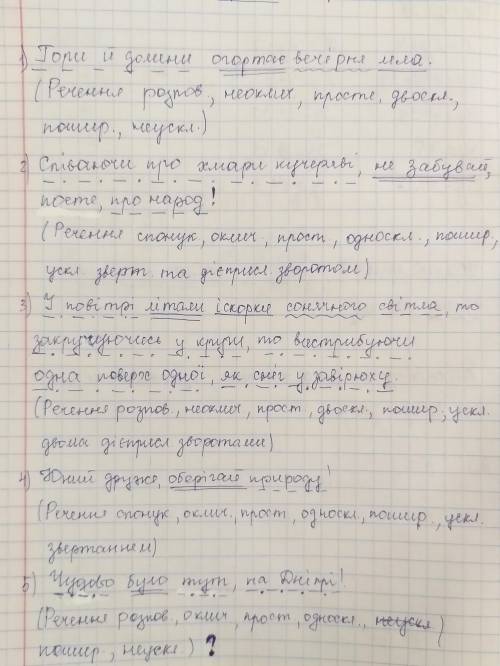 1) Гори й долини огортає вечірня мла.
(Речення розпов., неоклич, просте, двоскл.,
пошир., неускл.)
2) Співаючи про хмари кучеряві, не забувай,
поете, про народ!
(Речення спонук, оклич, прост, односкл., пошир.,
ускл. зверт. та дієприсл. зворотом)
3) У повітрі літали іскорки сонячного світла, то
закручуючись у круги, то вистрибуючи
одна поверх одної, як сніг у завірюху.
(Речення розпов., неоклич, прост, двоскл., пошир, ускл.
двома дієприсл зворотами)
4) Юний друже, оберігай природу!
(Речення спонук, оклич., прост, односкл, пошир., ускл.
звертанням)
5) Чудово було тут, на Дніпрі!
(Речення розпов., оклич, прост, односкл., неускл)
пошир, неускл.) ?